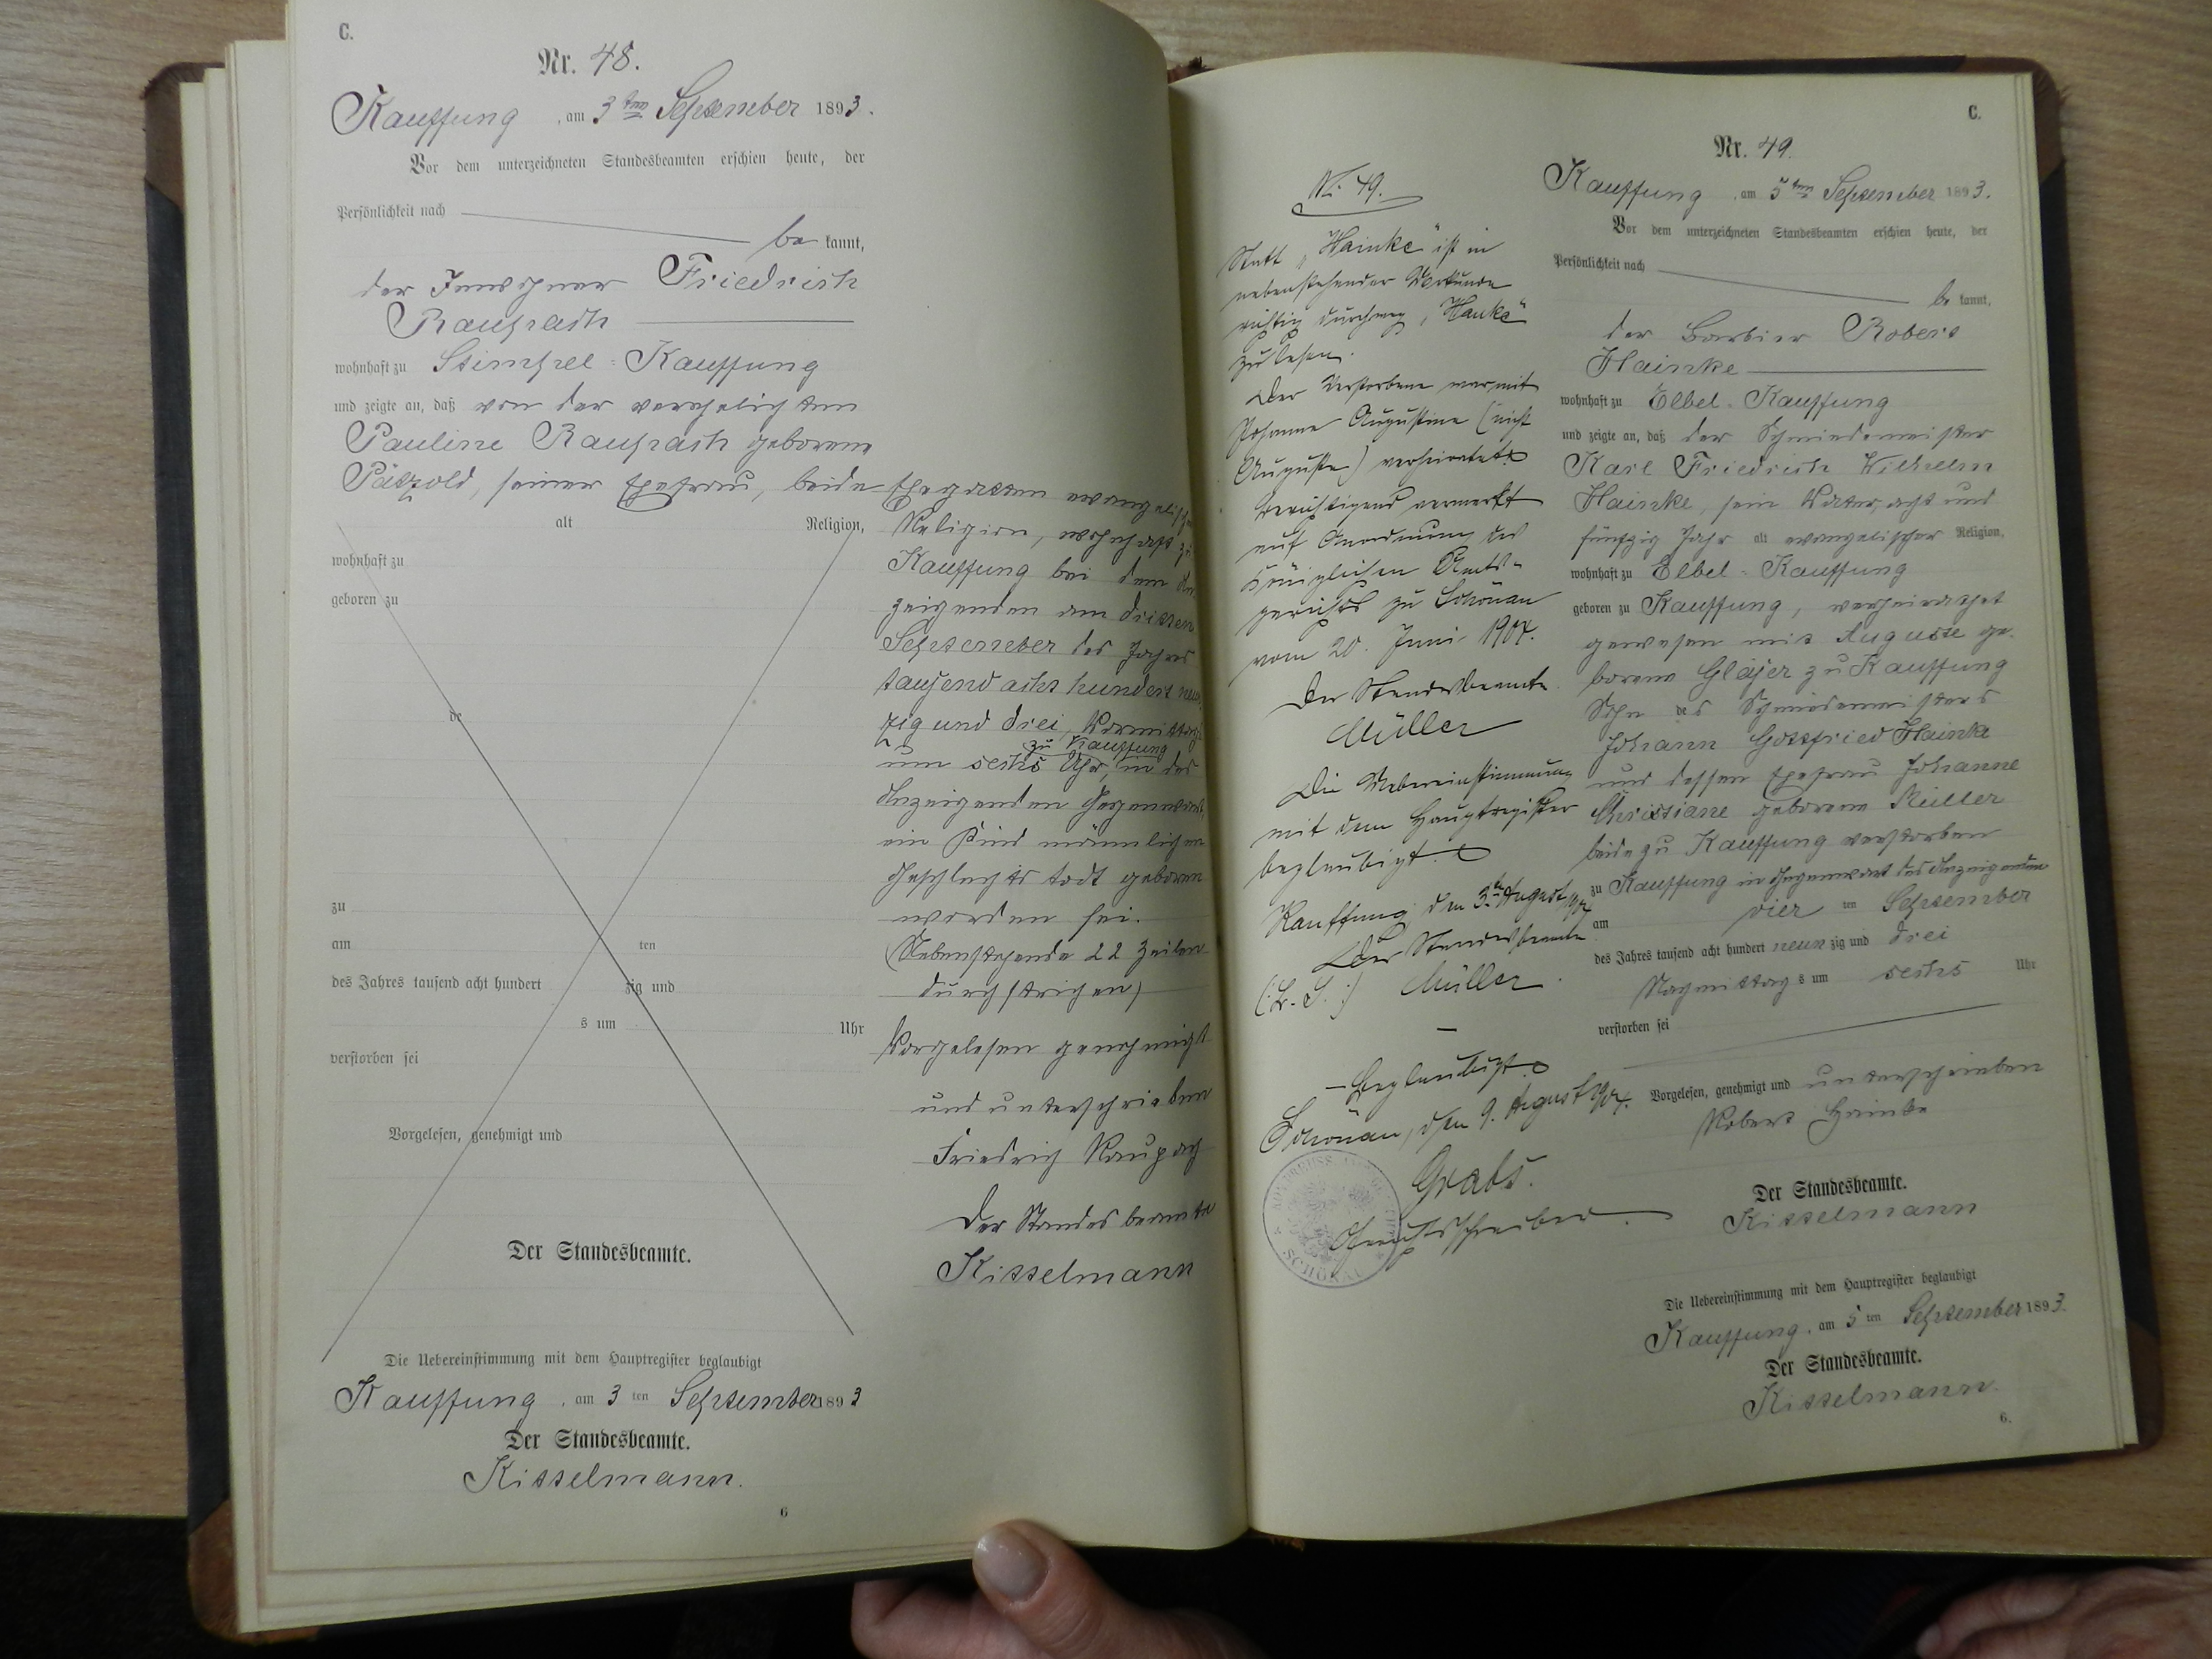 C.
Nr. 48.
Kauffung, am 3ten September 1893.
Vor dem unterzeichneten Standesbeamten erschien heute, der
Persönlichkeit nach
be kannt,
der Inwohner Friedrich
Raupach
wohnhaft zu Stimpel-Kauffung
und zeigte an, daß von der verehelichten
Pauline Raupach geborene
Pätzold, seiner Ehefrau, beide
alt Religion,
wohnhaft zu
geboren zu
de
zu
am ten
des Jahres tausend acht hundert zig und
s um Uhr
verstorben sei
Vorgelesen, genehmigt und
Der Standesbeamte.
Ehegatten evangelischer
Religion, wohnhaft zu
Kauffung bei dem An-
zeigenden am dritten
September des Jahres
tausend acht hundert neun-
zig und drei, Vormittags
zu Kauffung
um sechs Uhr, in des
Anzeigenden Gegenwart,
ein Kind männlichen
Geschlechts todt geboren
worden sei.
(Nebenstehende 22 Zeilen
durchstrichen)
Vorgelesen genehmigt
und unterschrieben
Friedrich Raupach
Der Standesbeamte
Kisselmann
Die Uebereinstimmung mit dem Hauptregister beglaubigt
Kauffung, am 3 ten September 1893
Der Standesbeamte.
Kisselmann.
6
C.
Nr. 49.
Kauffung, am 5ten September 1893.
Vor dem unterzeichneten Standesbeamten erschien heute, der
Persönlichkeit nach
be kannt,
der Barbier Robert
Hainke
wohnhaft zu Elbel-Kauffung
und zeigte an, daß der Schmiedemeister
Karl Friedrich Wilhelm
Hainke, sein Vater, acht und
fünfzig Jahr alt evangelischer Religion,
wohnhaft zu Elbel-Kauffung
geboren zu Kauffung, verheirathet
gewesen mit Auguste ge-
borene Gläser zu Kauffung
Sohn des Schmiedemeisters
Johann Gottfried Hainke
und dessen Ehefrau Johanne
Christiane geborene Müller
beide zu Kauffung verstorben
zu Kauffung in Gegenwart des Anzeigenden
am vier ten September
des Jahres tausend acht hundert neun zig und drei
Nachmittag s um sechs Uhr
verstorben sei
Vorgelesen, genehmigt und unterschrieben
Robert Hainke
Der Standesbeamte.
Kisselmann
Die Uebereinstimmung mit dem Hauptregister beglaubigt
Kauffung, am 5 ten September 1893.
Der Standesbeamte.
Kisselmann.
6.
N. 49.
Statt "Hainke" ist in
nebenstehender Urkunde
richtig durchweg "Hanke"
zu lesen.
Der Verstorbene war mit
Johanne Augustine (nicht
Auguste) verheiratet.
Berichtigend vermerkt
auf Anordnung des
Königlichen Amts-
gerichts zu Schönau
vom 20. Juni 1907.
Der Standesbeamte
Müller
Die Uebereinstimmung
mit dem Hauptregister
beglaubigt.
Kauffung, den 3ten August 1907
Der Standesbeamte.
(:L. S.:) Müller.
Beglaubigt
Schönau, den 9. August 1907.
Grabs.
Gerichtsschreiber.
SCHÖNAU